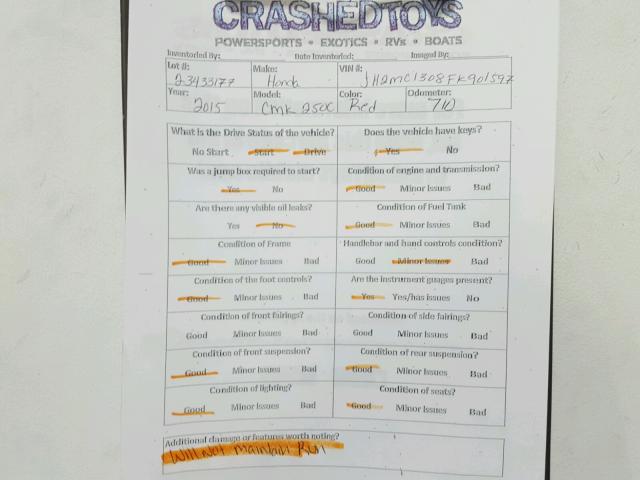 CRASHEDTOYS
POWERSPORTS • EXOTICS • RVs • BOATS
Inventoried By: Date Inventoried: Imaged By:
Lot #: Make: VIN #:
23433177 Honda JH2MC1308FK901597
Year: Model: Color: Odometer:
2015 CMK 250C Red 710
What is the Drive Status of the vehicle? Does the vehicle have keys?
No Start Start Drive Yes No
Was a jump box required to start? Condition of engine and transmission?
Yes No Good Minor Issues Bad
Are there any visible oil leaks? Condition of Fuel Tank
Yes No Good Minor Issues Bad
Condition of Frame Handlebar and hand controls condition?
Good Minor Issues Bad Good Minor Issues Bad
Condition of the foot controls? Are the instrument guages present?
Good Minor Issues Bad Yes Yes/has issues No
Condition of front fairings? Condition of side fairings?
Good Minor Issues Bad Good Minor Issues Bad
Condition of front suspension? Condition of rear suspension?
Good Minor Issues Bad Good Minor Issues Bad
Condition of lighting? Condition of seats?
Good Minor Issues Bad Good Minor Issues Bad
Additional damage or features worth noting?
Will not maintain Run